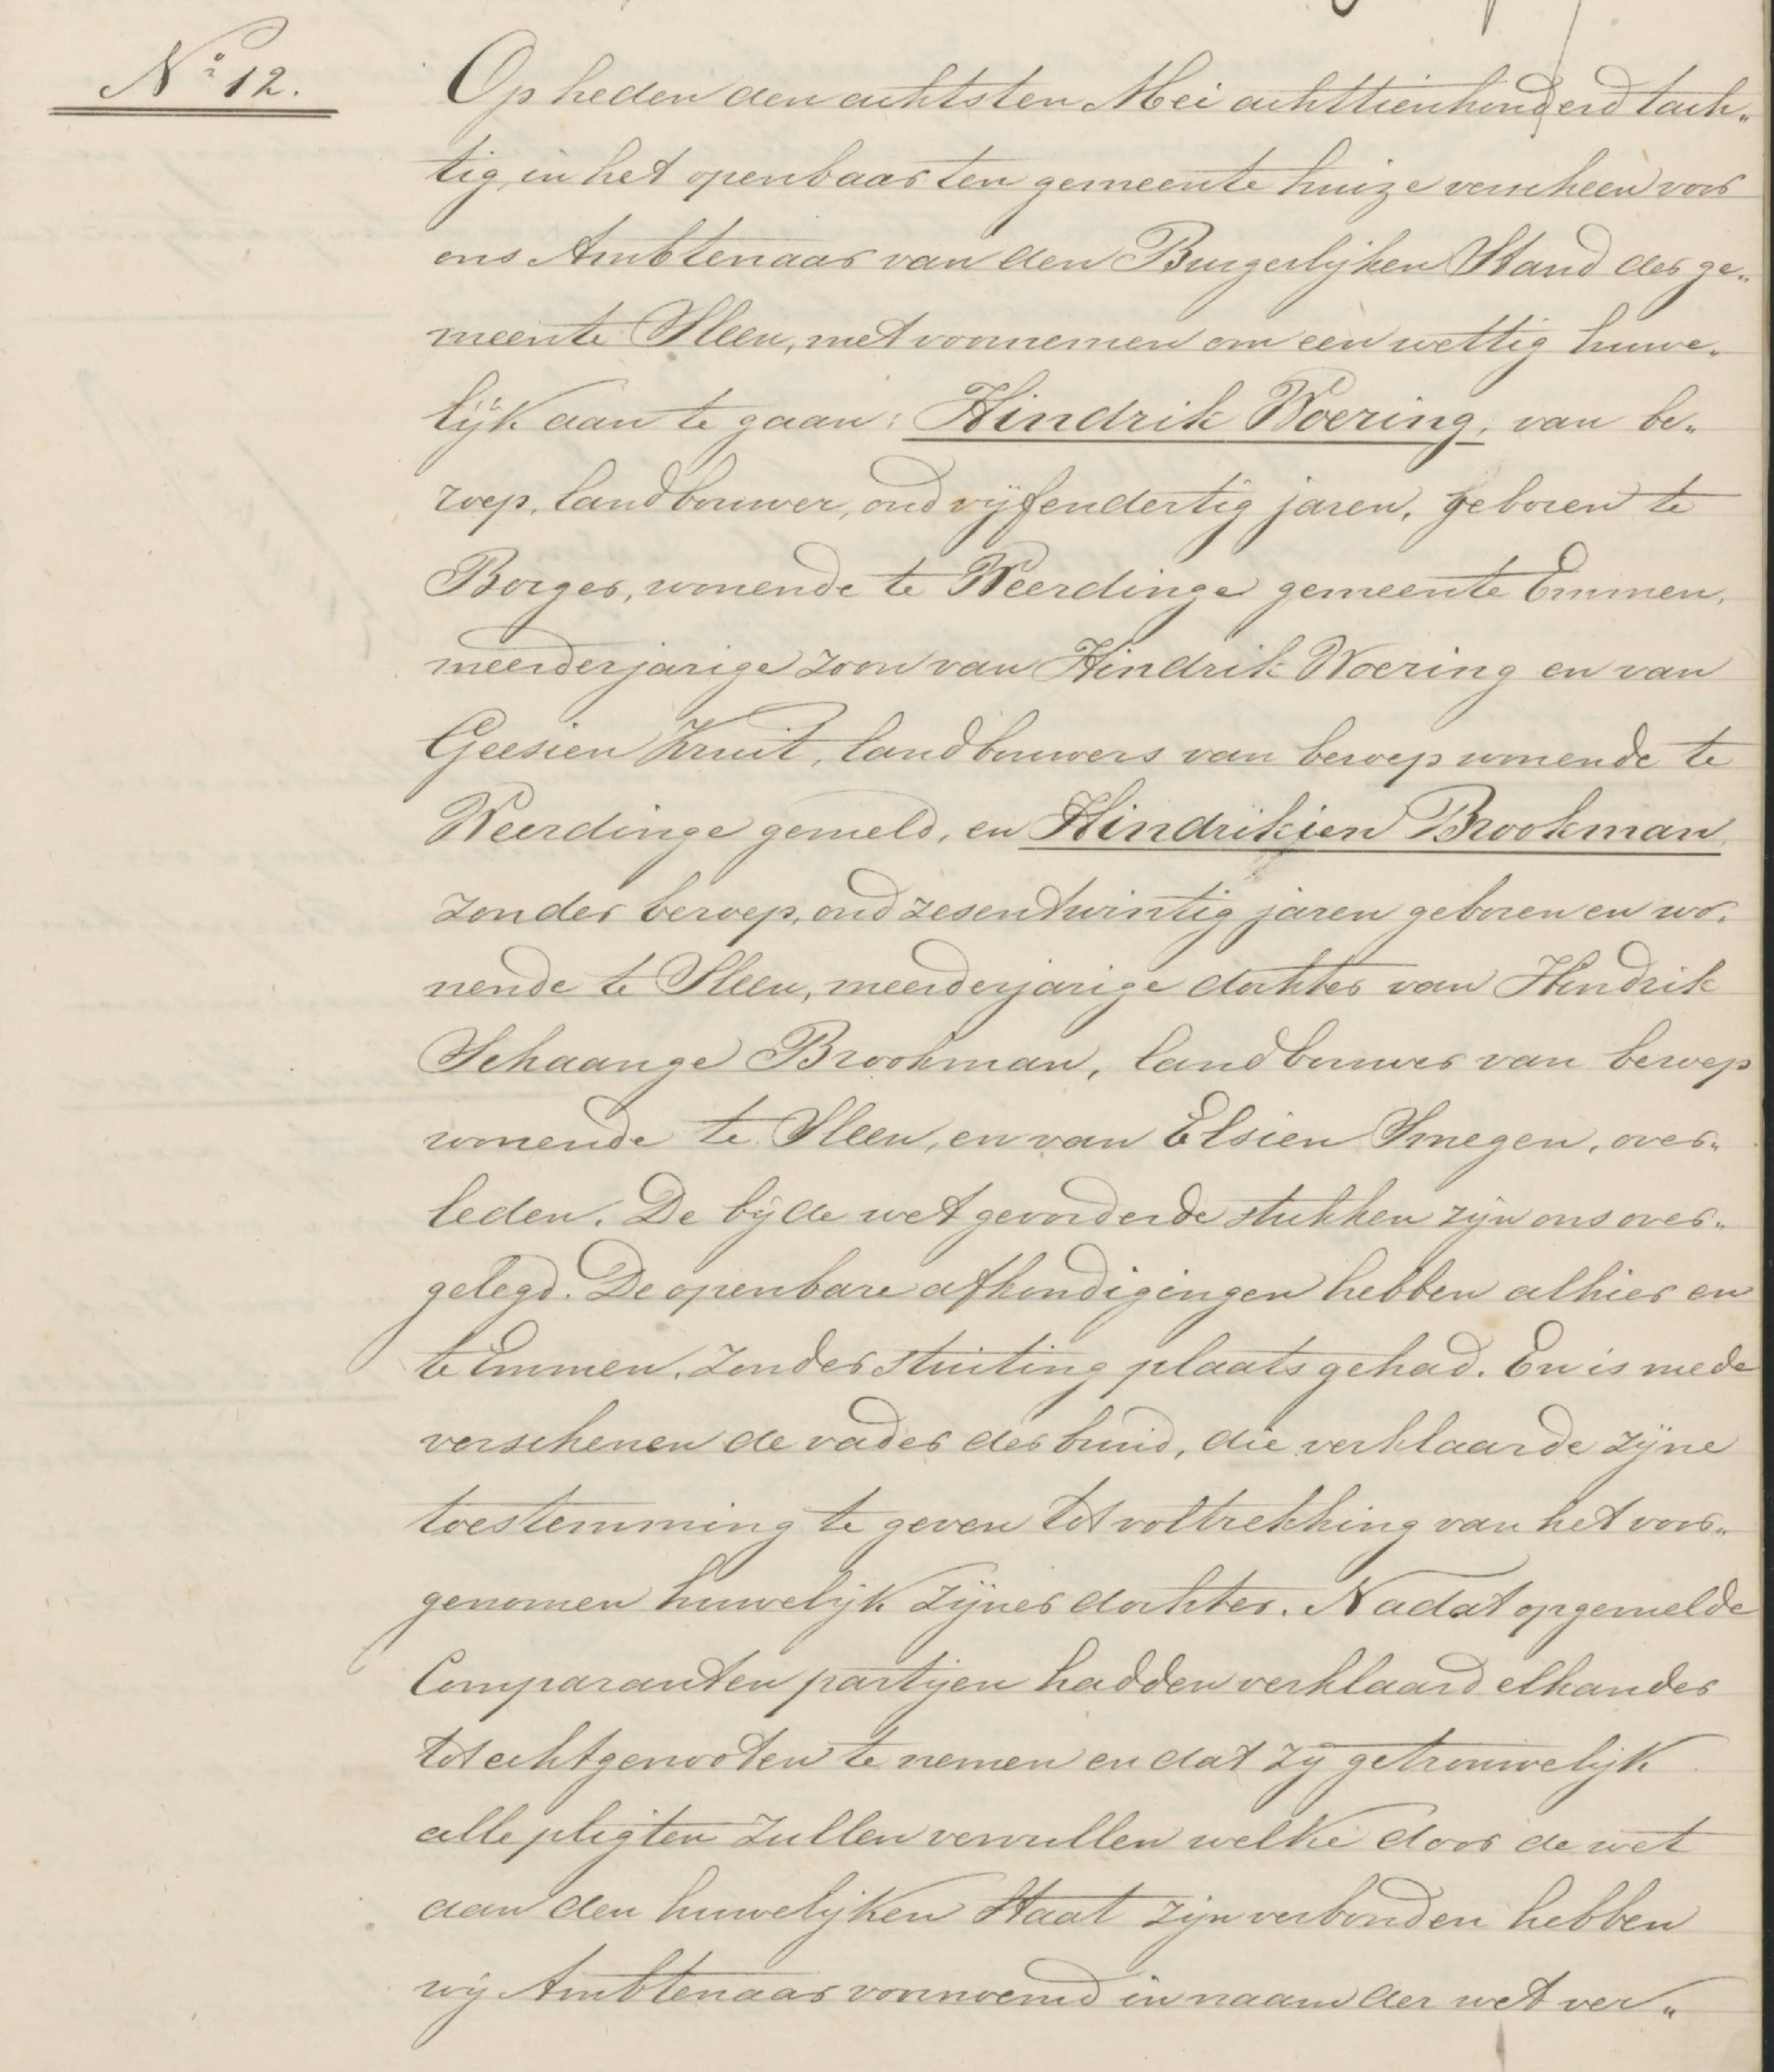 No 12.
Op heden den achtsten Mei achttienhonderd tach„
tig, in het openbaar ten gemeente huize verscheen voor
ons Ambtenaar van den Burgerlijken Stand der ge„
meente Sleen, met voornemen om een wettig huwe„
lijk aan te gaan: Hindrik Woering, van be„
roep, landbouwer, oud vijfendertig jaren, geboren te
Borger, wonende te Weerdinge gemeente Emmen,
meerderjarige zoon van Hindrik Woering en van
Geesien Kruit, landbouwers van beroep wonende te
Weerdinge gemeld, en Hindrikien Brookman
zonder beroep, oud zesentwintig jaren geboren en wo„
nende te Sleen, meerderjarige dochter van Hindrik
Schaange Brookman, landbouwer van beroep
wonende te Sleen, en van Elsien Smegen, over„
leden. De bij de wet gevorderde stukken zijn ons over„
gelegd. De openbare afkondigingen hebben alhier en
te Emmen, zonder stuiting plaats gehad. En is mede
verschenen de vader der bruid, die verklaarde zijne
toestemming te geven tot voltrekking van het voor„
genomen huwelijk zijner dochter. Nadat opgemelde
Comparanten partijen hadden verklaard elkander
tot echtgenooten te nemen en dat zij getrouwelijk
alle pligten zullen vervullen welke door de wet
aan den huwelijken Staat zijn verbonden hebben
wij Ambtenaar voornoemd in naam der wet ver„